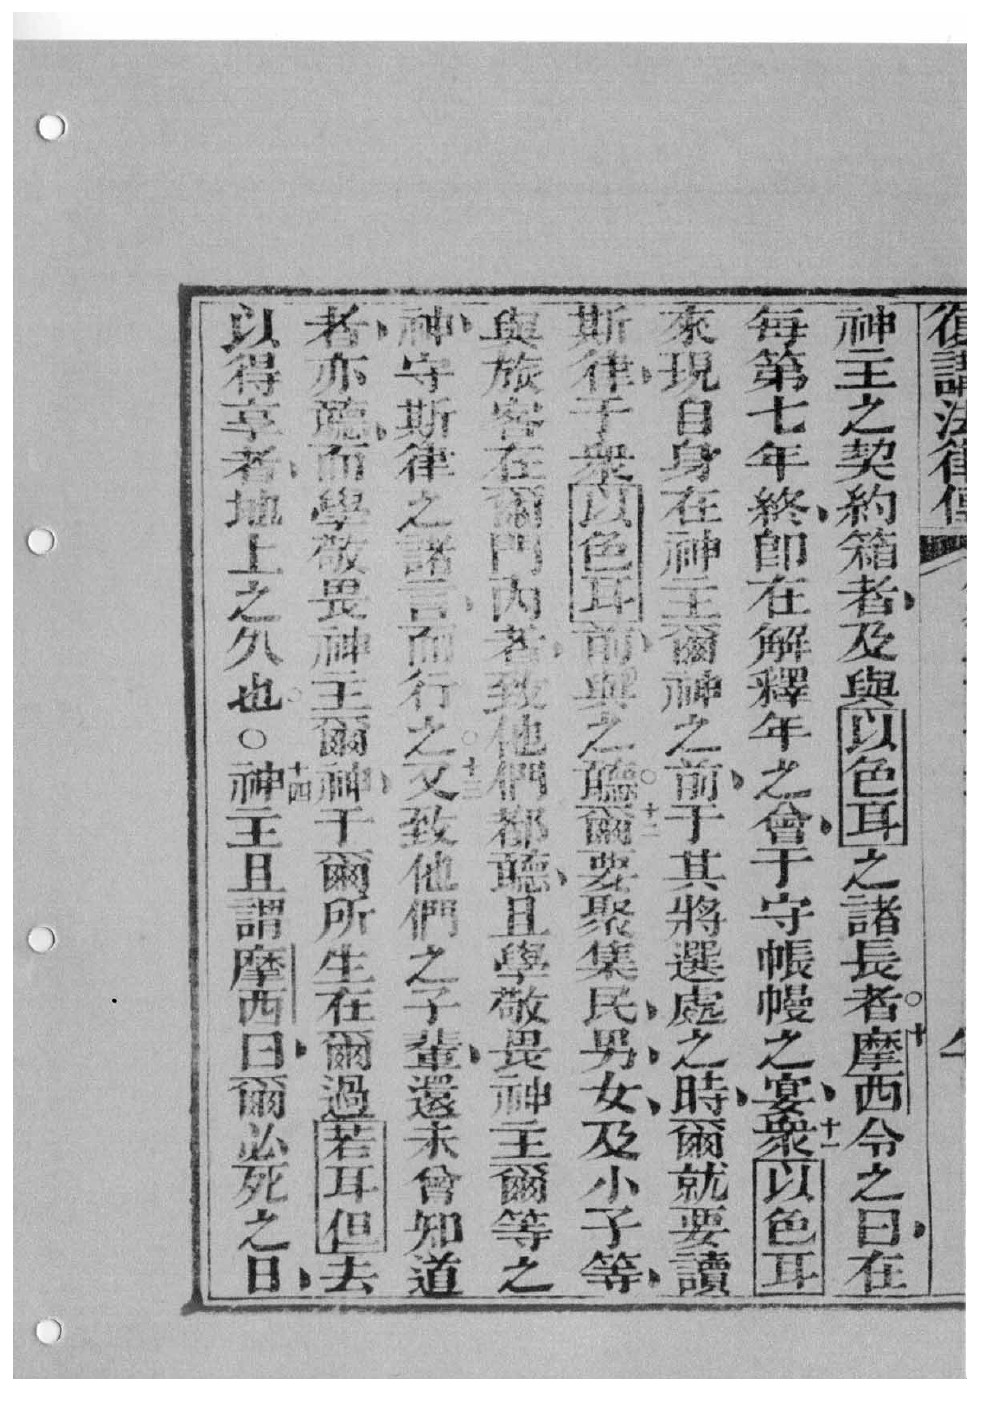 復講法律傳
神主之契約箱者、及與以色耳之諸長者。十摩西令之曰、在
每第七年終、卽在解釋年之會、于守帳幔之宴、十一衆以色耳
來現自身在神主爾神之前、于其將選處之時、爾就要讀
斯律、于衆以色耳前、與之聽。十二爾要聚集民、男、女、及小子等、
與旅客在爾門內者、致他們都聽、且學敬畏神主爾等之
神、守斯律之諸言、而行之。十三又致他們之子輩、還未曾知道
者、亦聽、而學敬畏神主爾神、于爾所生在爾過若耳但去
以得享者、地上之久也。○十四神主且謂摩西曰、爾必死之日、